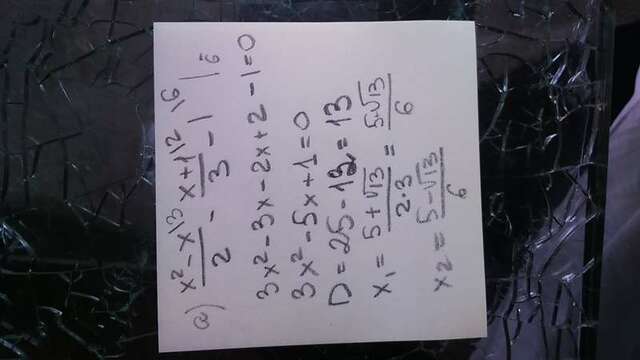 а) x² - x\3 / 2 - x + 1\2 / 3 - 1\6 | 6
3x² - 3x - 2x + 2 - 1 = 0
3x² - 5x + 1 = 0
D = 25 - 12 = 13
x₁ = 5 + √13 / 2·3 = 5·√13 / 6
x₂ = 5 - √13 / 6